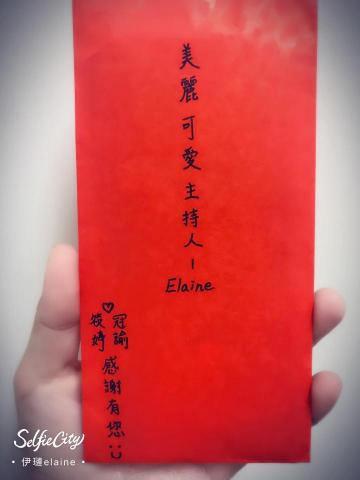 美麗可愛主持人-
Elaine
♡
冠諭
筱婷
感謝有您:)
SelfieCity
• 伊璉elaine •